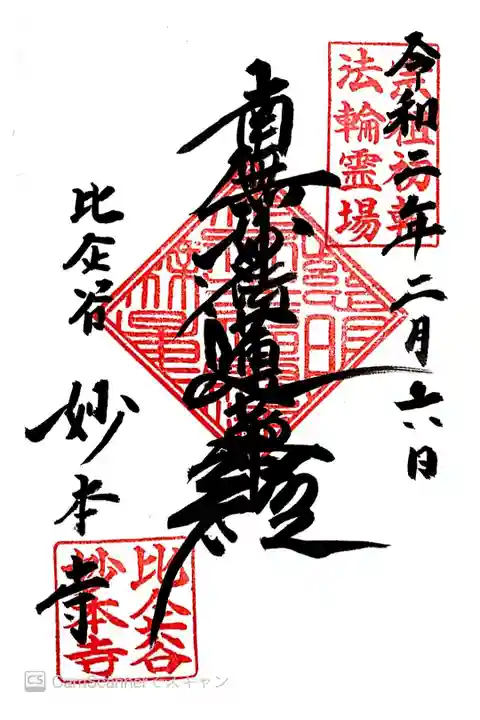 令和二年二月六日
宗祖初転
法輪霊場
南無妙法蓮華経
比企谷
妙本寺
比企谷
妙本寺
CS CamScannerでスキャン